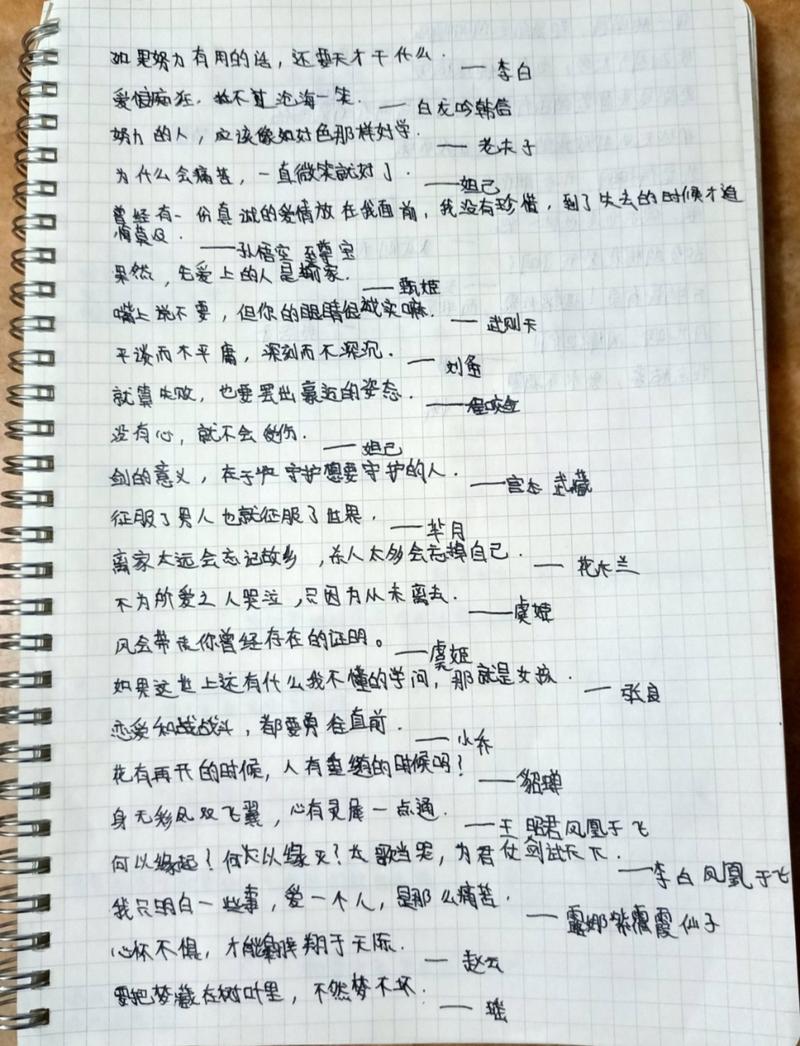 如果努力有用的话，还要天才干什么. — 李白
爱恨痴狂，敌不过沧海一笑. — 白龙吟韩信
努力的人，应该像好色那样好学. — 老夫子
为什么会痛苦，一直微笑就好了. — 妲己
曾经有一份真诚的爱情放在我面前，我没有珍惜，到了失去的时候才追
悔莫及. — 孙悟空 至尊宝
果然，先爱上的人是输家. — 甄姬
嘴上说不要，但你的眼睛很诚实嘛. — 武则天
平淡而不平庸，深刻而不深沉. — 刘备
就算失败，也要摆出豪迈的姿态. — 程咬金
没有心，就不会受伤. — 妲己
剑的意义，在于守护想要守护的人. — 宫本 武藏
征服了男人也就征服了世界. — 芈月
离家太远会忘记故乡，杀人太多会忘掉自己. — 花木兰
不为所爱之人哭泣，只因为从未离去. — 虞姬
风会带走你曾经存在的证明。 — 虞姬
如果这世上还有什么我不懂的学问，那就是女孩. — 张良
恋爱和战战斗，都要勇往直前. — 小乔
花有再开的时候，人有重逢的时候吗？ — 貂蝉
身无彩凤双飞翼，心有灵犀一点通. — 王昭君凤凰于飞
何以缘起？何以缘灭？长歌当哭，为君仗剑试天下. — 李白凤凰于飞
我只明白一些事，爱一个人，是那么痛苦. — 露娜紫霞仙子
心怀不惧，才能翱翔于天际. — 赵云
要把梦藏在树叶里，不然梦不坏. — 瑶